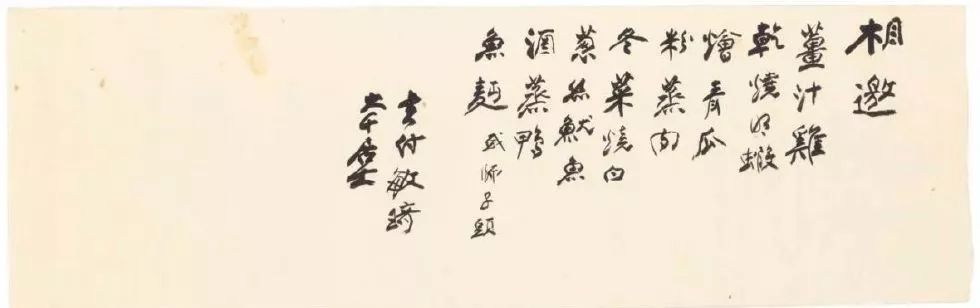 相邀
薑汁雞
乾燒明蝦
燴青瓜
粉蒸肉
冬菜燒白
葱絲魷魚
酒蒸鴨
魚麵 或師子頭
付敏琦
大千居士